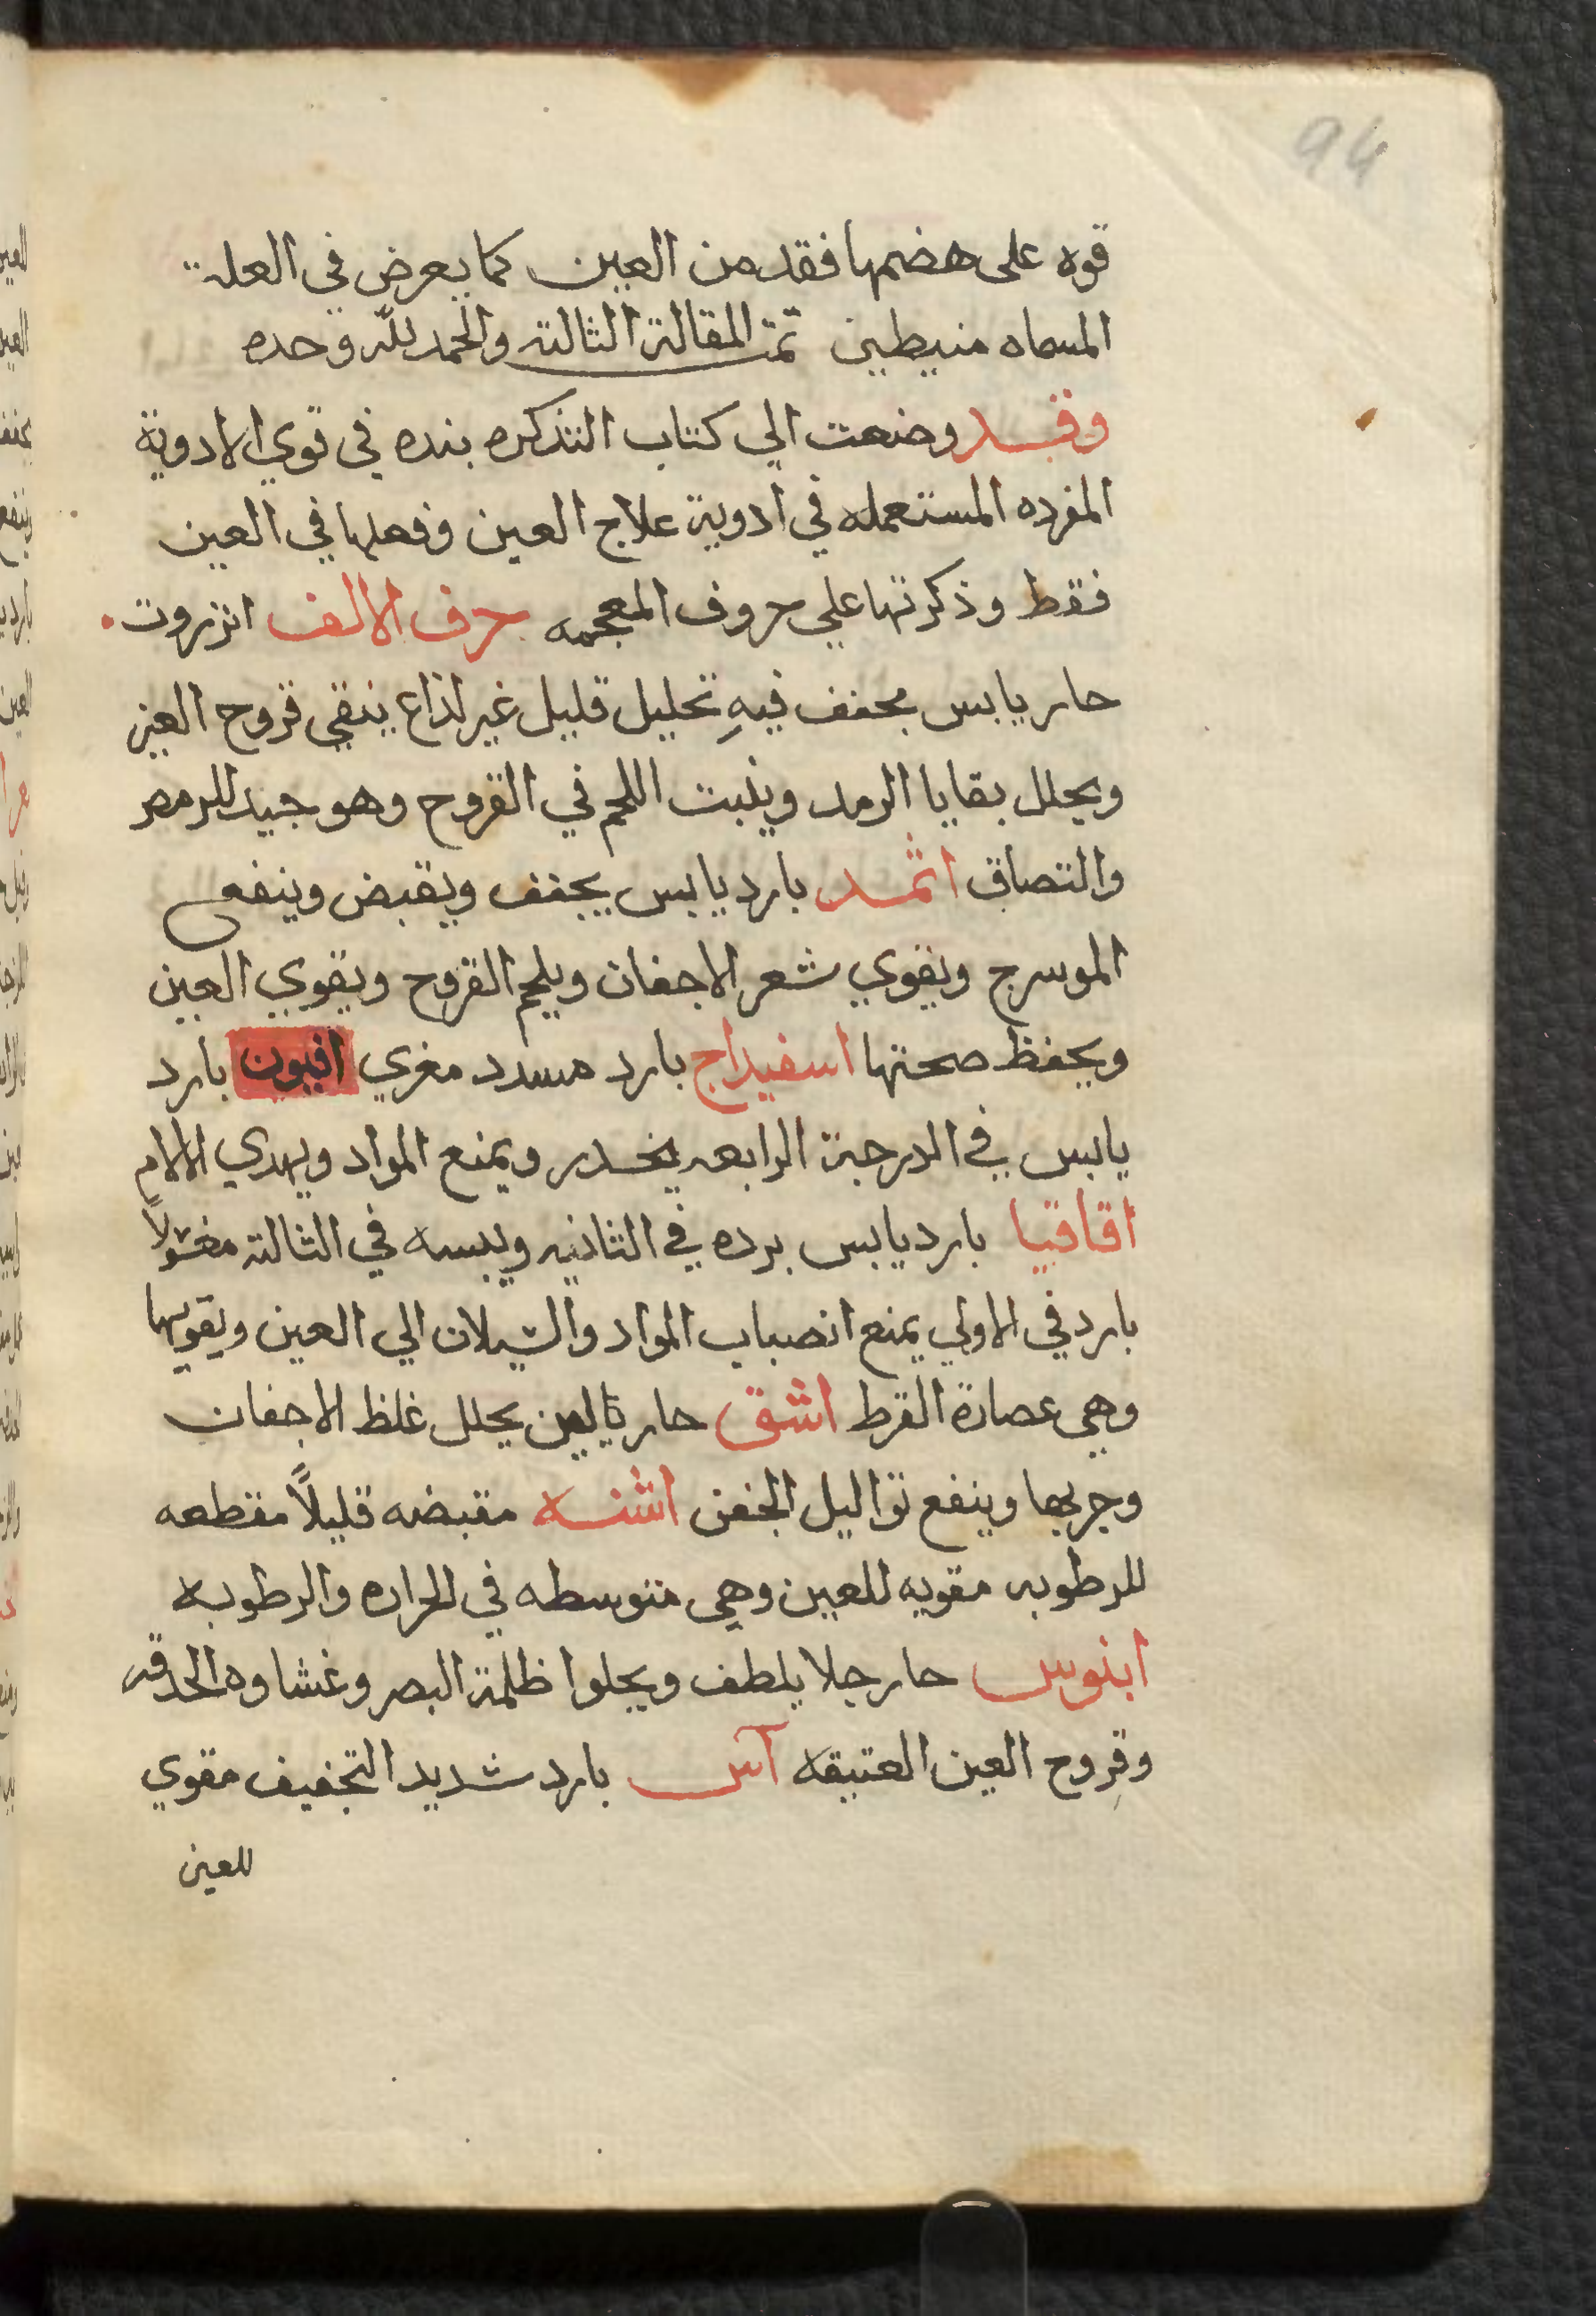 94
قوه على هضمها فقد من العين كما يعرض في العلة
المسماه منيطين تمت المقالة الثالثه والحمد لله وحده
وقد وضعت الي كتاب التذكره بنده في قوي الادوية
المفرده المستعمله في ادوية علاج العين وفعلها في العين
فقط وذكرتها علي حروف المعجمه حرف الالف انزروت
حار يابس مجفف فيه تحليل قليل غير لذاع ينقي قروح العين
ويحلل بقايا الرمد وينبت اللحم في القروح وهو جيد للرمص
والتصاق اثمد بارد يابس يجفف ويقبض وينفع
الموسرج ويقوي شعر الاجفان ويلحم القروح ويقوي العين
ويحفظ صحتها اسفيداج بارد مسدد مغري افيون بارد
يابس في الدرجة الرابعه يخدر ويمنع المواد ويهدي الالام
اقاقيا بارد يابس برده في الثانيه ويبسه في الثالثه مغسولاً
بارد في الاولي يمنع انصباب المواد والسيلان الي العين ويقويها
وهي عصارة القرط اشق حار يلين يحلل غلظ الاجفان
وجربها وينفع تواليل الجفن اشنه مقبضه قليلاً مقطعه
للرطوبه مقويه للعين وهي متوسطه في الحراره والرطوبه
ابنوس حار جلا يلطف ويجلوا ظلمة البصر وغشاوه الحدقه
وقروح العين العتيقه آس بارد شديد التجفيف مقوي
للعين